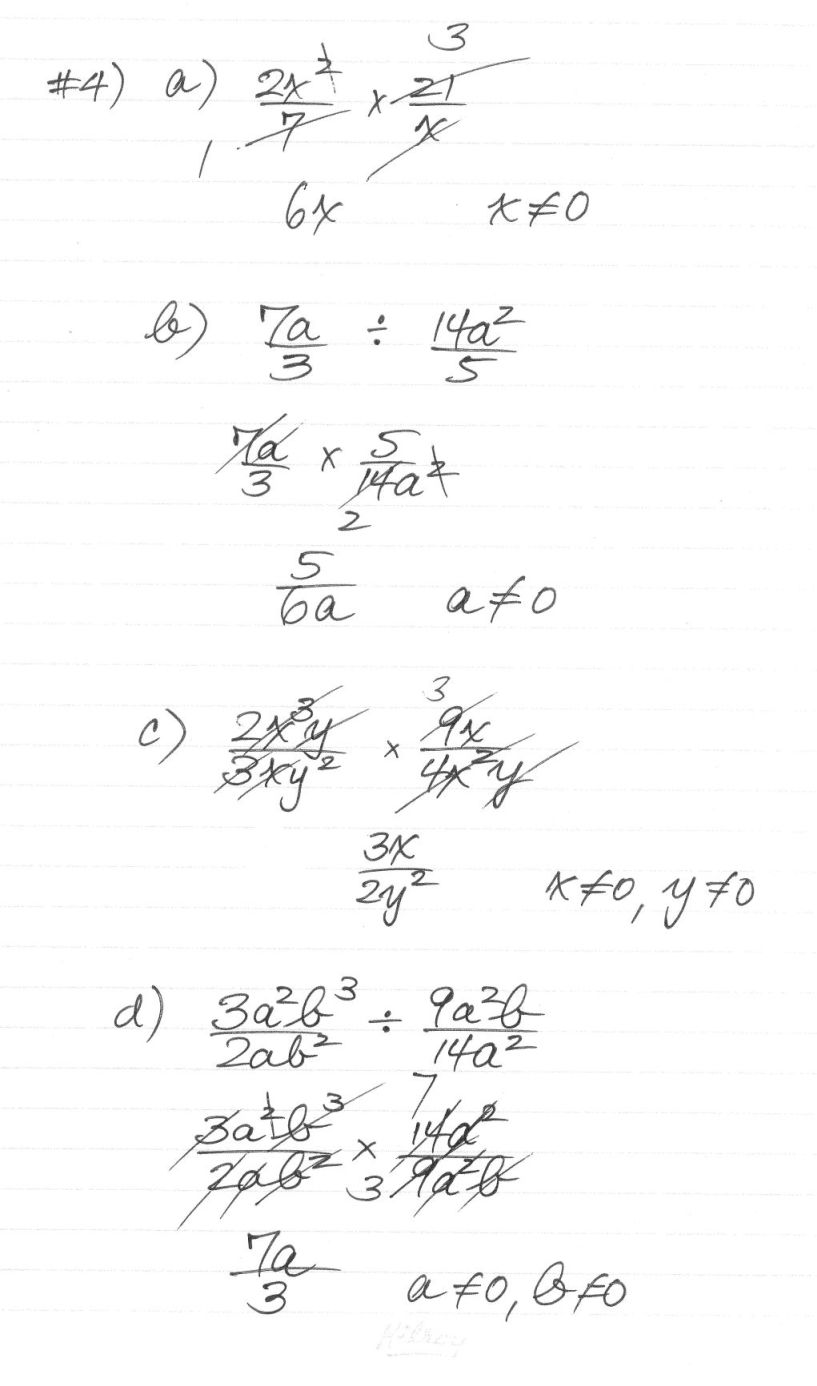 #4) a) 2x²/7 × 21/x
3
1
6x x≠0
b) 7a/3 ÷ 14a²/5
7a/3 × 5/14a²
2
5/6a a≠0
c) 2x³y/3xy² × 9x/4x²y
3
3x/2y² x≠0, y≠0
d) 3a²b³/2ab² ÷ 9a²b/14a²
7
3a²b³/2ab² × 14a²/9a²b
3
7a/3 a≠0, b≠0